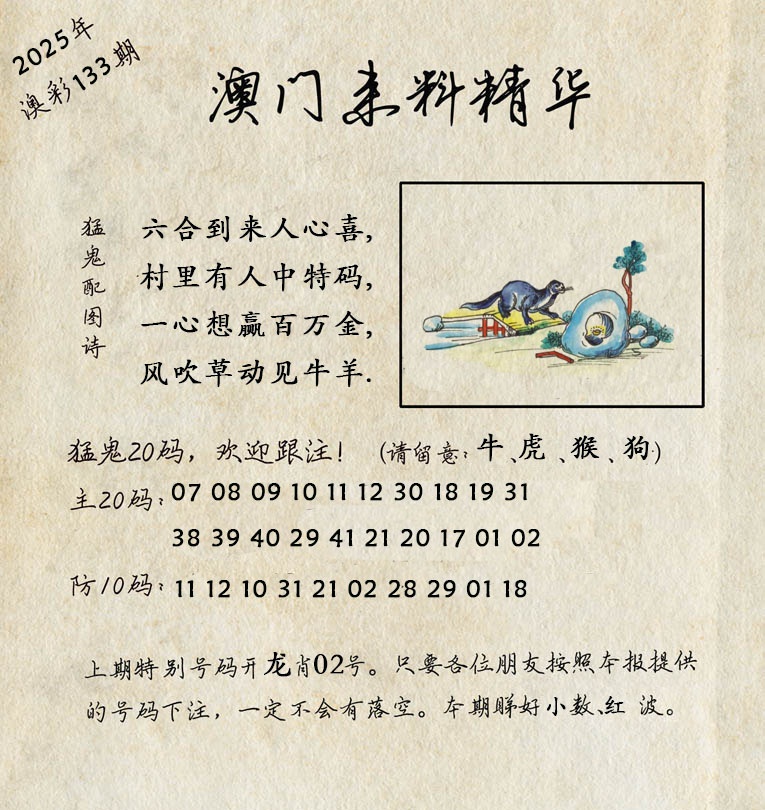 2025年
澳彩133期
澳门来料精华
猛鬼配图诗
六合到来人心喜,
村里有人中特码,
一心想赢百万金,
风吹草动见牛羊.
猛鬼20码，欢迎跟注！ (请留意：牛、虎、猴、狗)
主20码：07 08 09 10 11 12 30 18 19 31
38 39 40 29 41 21 20 17 01 02
防10码：11 12 10 31 21 02 28 29 01 18
上期特别号码开龙肖02号。只要各位朋友按照本报提供
的号码下注，一定不会有落空。本期睇好小数、红 波。